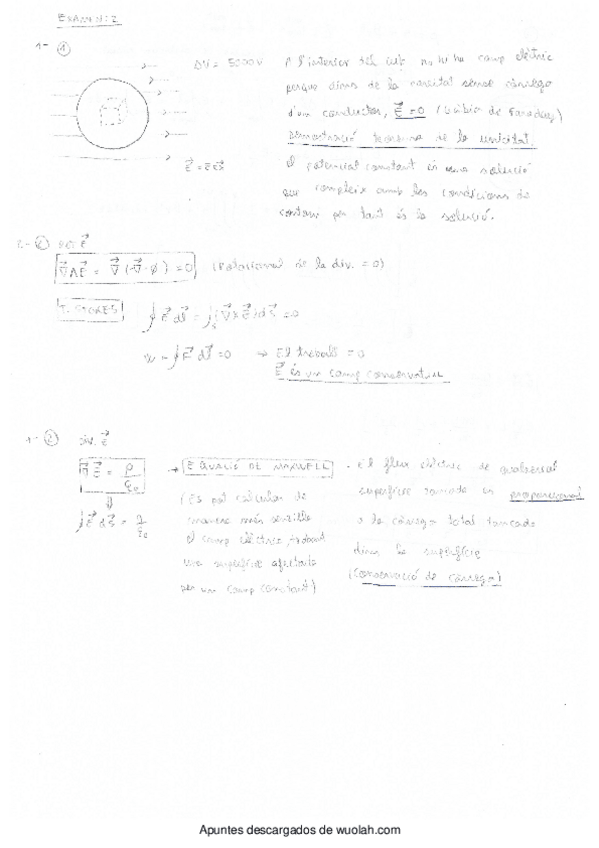 EXAMEN: 2
1- ①
ΔV = 5000V
A l'interior del cub no hi ha camp elèctric
perque dins de la cavitat sense càrrega
d'un conductor, E⃗ = 0 (Gàbia de Faraday)
Demostració teorema de la unicitat.
El potencial constant és una solució
que compleix amb les condicions de
contorn per tant és la solució.
2- ②
∇⃗ ∧ E⃗ = ∇⃗ (-∇⃗ · ∅) = 0 (Rotacional de la div. = 0)
T. STOKES
∮ E⃗ dl⃗ = ∫∫ (∇⃗ x E⃗) dS⃗ = 0
W = ∮ F⃗ dl⃗ = 0 → El treball = 0
E⃗ és un camp conservatiu
1- ② div. E⃗
∇⃗ E⃗ = ρ/ε₀ → EQUACIÓ DE MAXWELL
∫ E⃗ dS⃗ = q/ε₀
(Es pot calcular de
manera més sensible
el camp elèctric trobant
una superfície afectada
per un camp constant)
- el flux elèctric de qualsevol
superfície tancada és proporcional
a la càrrega total tancada
dins la superfície
(Conservació de càrrega)
Apuntes descargados de wuolah.com